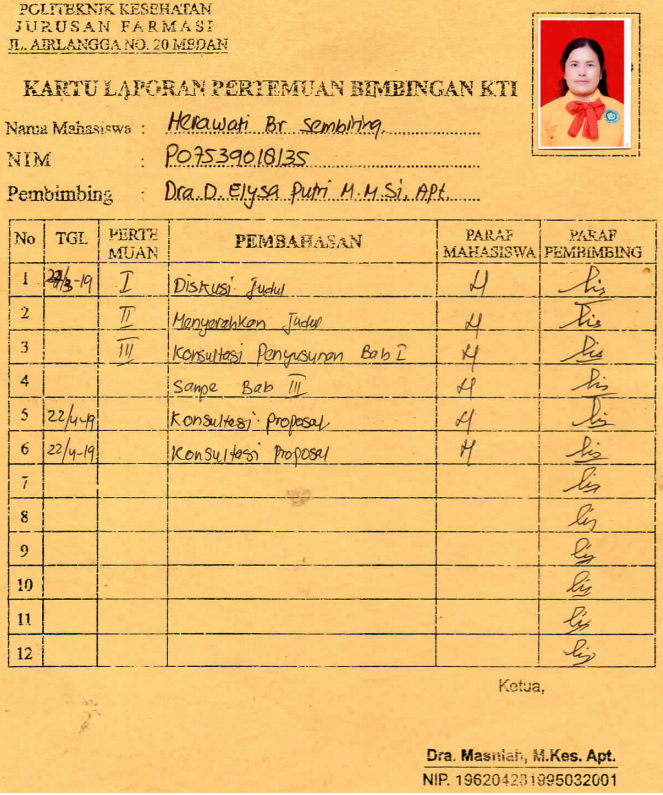 POLITEKNIK KESEHATAN
JURUSAN FARMASI
JL. AIRLANGGA NO. 20 MEDAN
KARTU LAPORAN PERTEMUAN BIMBINGAN KTI
Nama Mahasiswa : Herawati Br Sembiring
NIM : P07539018135
Pembimbing : Dra. D. Elysa Putri M. M.Si, Apt.
No TGL PERTEMUAN PEMBAHASAN PARAF MAHASISWA PARAF PEMBIMBING
1 /3-19 I Diskusi Judul
2 II Menyerahkan Judul
3 III Konsultasi Penyusunan Bab I
4 Sampe Bab III
5 22/4-19 Konsultasi proposal
6 22/4-19 Konsultasi proposal
7
8
9
10
11
12
Ketua,
Dra. Masniah, M.Kes. Apt.
NIP. 196204281995032001